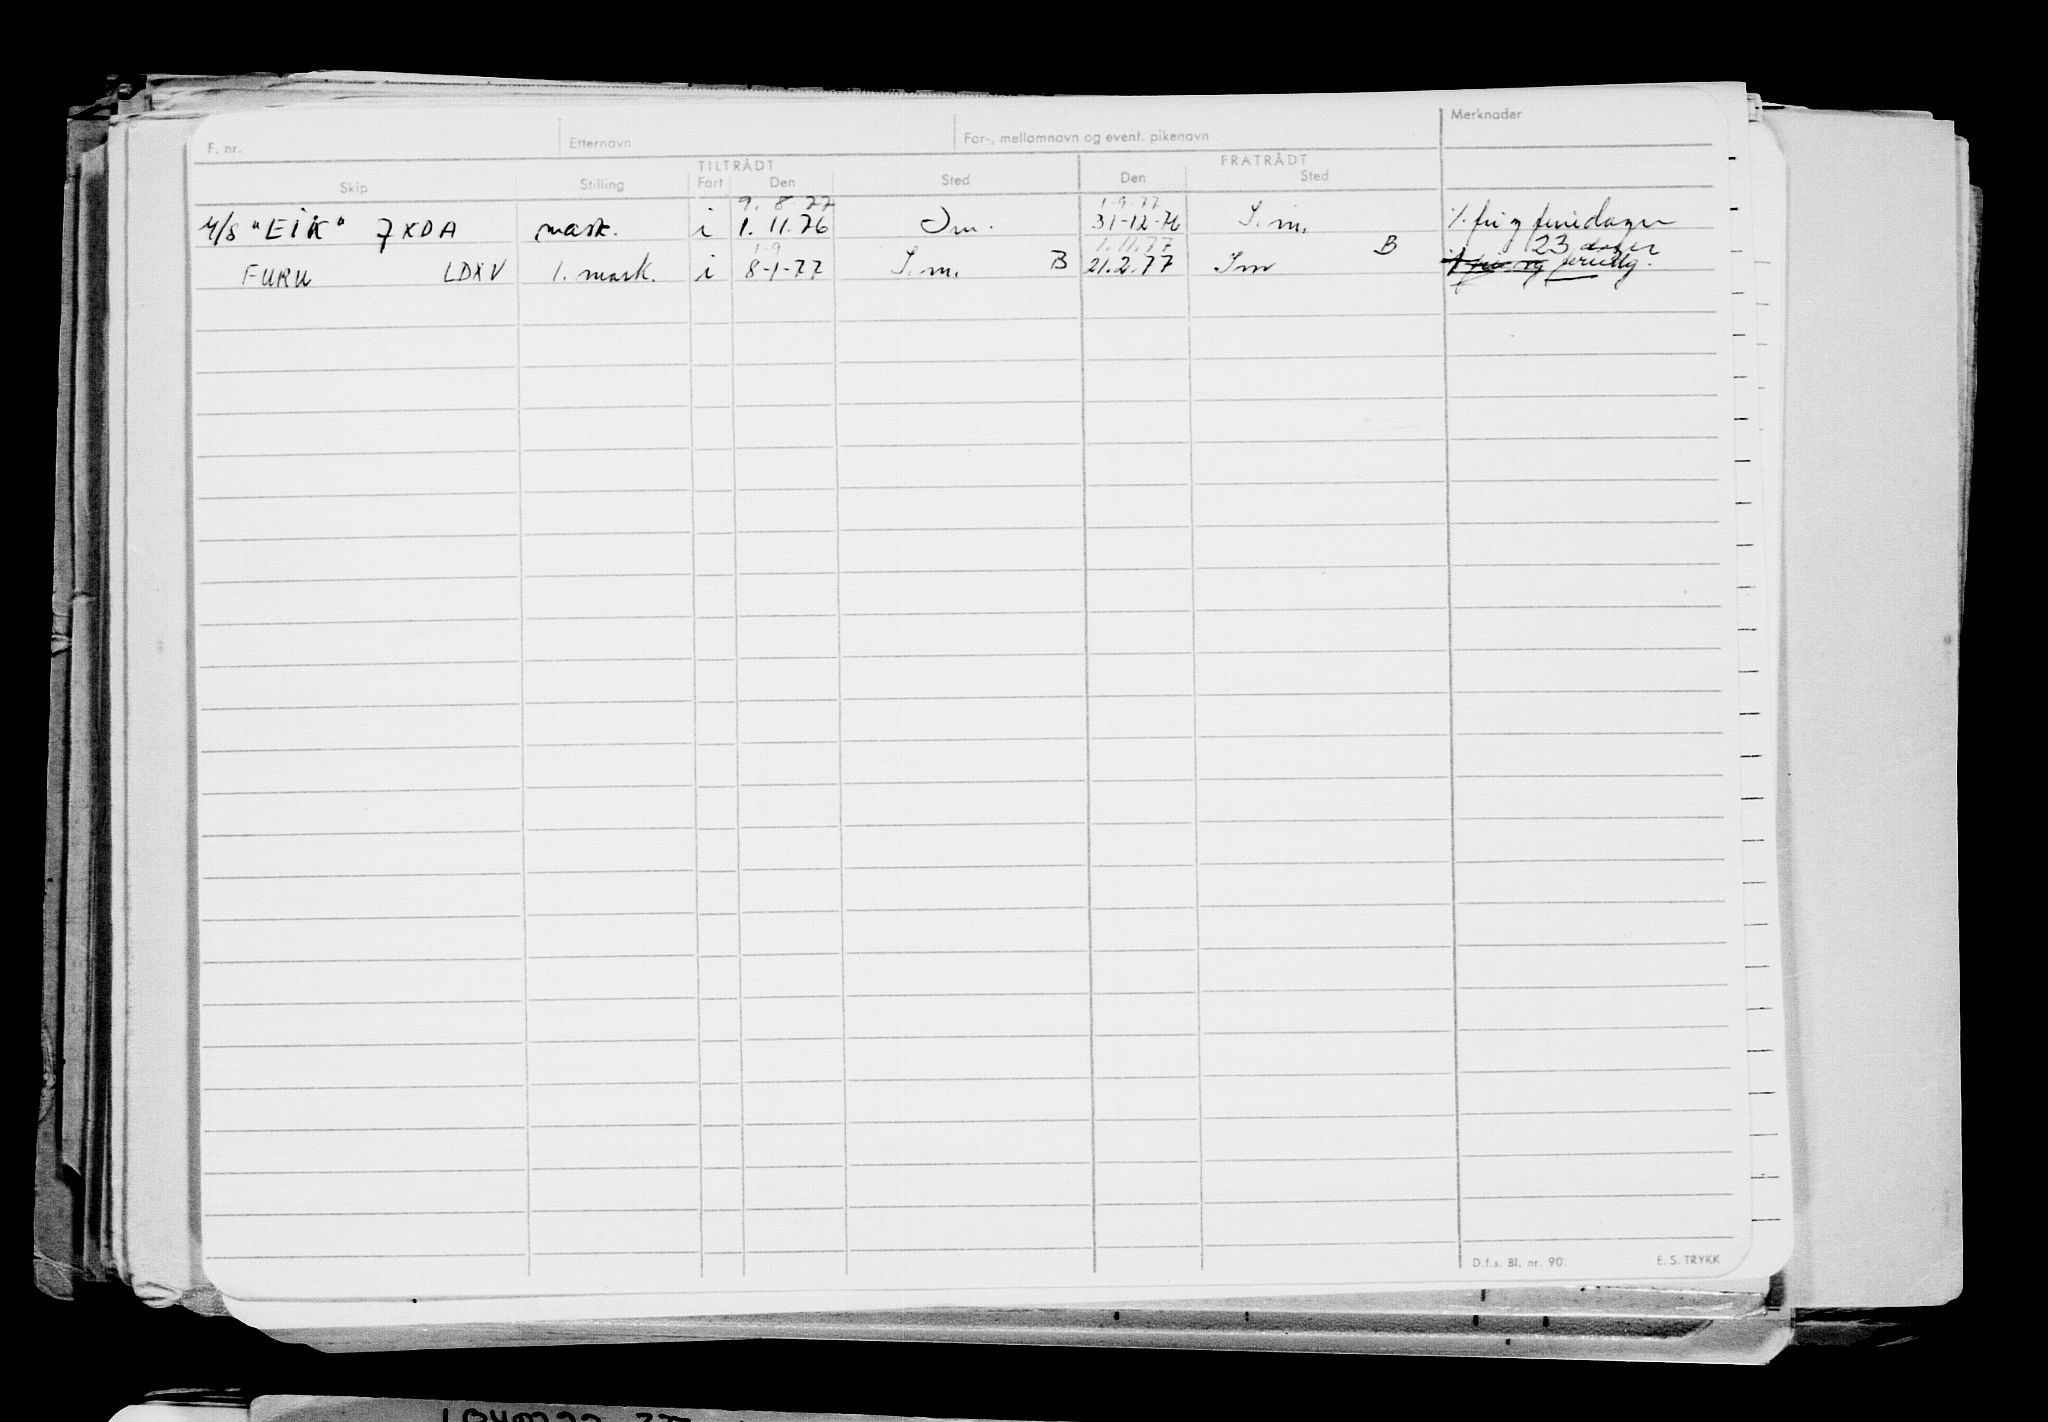 F. nr. Etternavn For-, mellomnavn og event. pikenavn Merknader
TILTRÅDT FRATRÅDT
Skip Stilling Fart Den Sted Den Sted
9. 8 77 1-9.77
M/S "EIK" 7XDA mask. i 1. 11.76 Im. 31-12-76 I. m. % fri og feriedager
1-9 1.11.77 B 23 dager
FURU LDXV 1. mask. i 8-1-77 I. m. B 21.2.77 Im
D.f.s. Bl. nr. 90. E. S. TRYKK